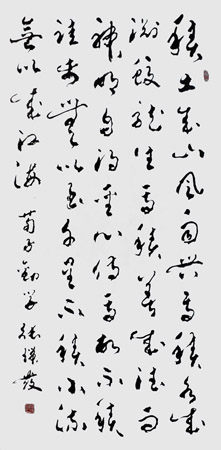 積土成山風雨興焉積水成
淵蛟龍生焉積善成德而
神明自得聖心備焉故不積
跬步無以至千里不積小流
無以成江海 荀子勸学